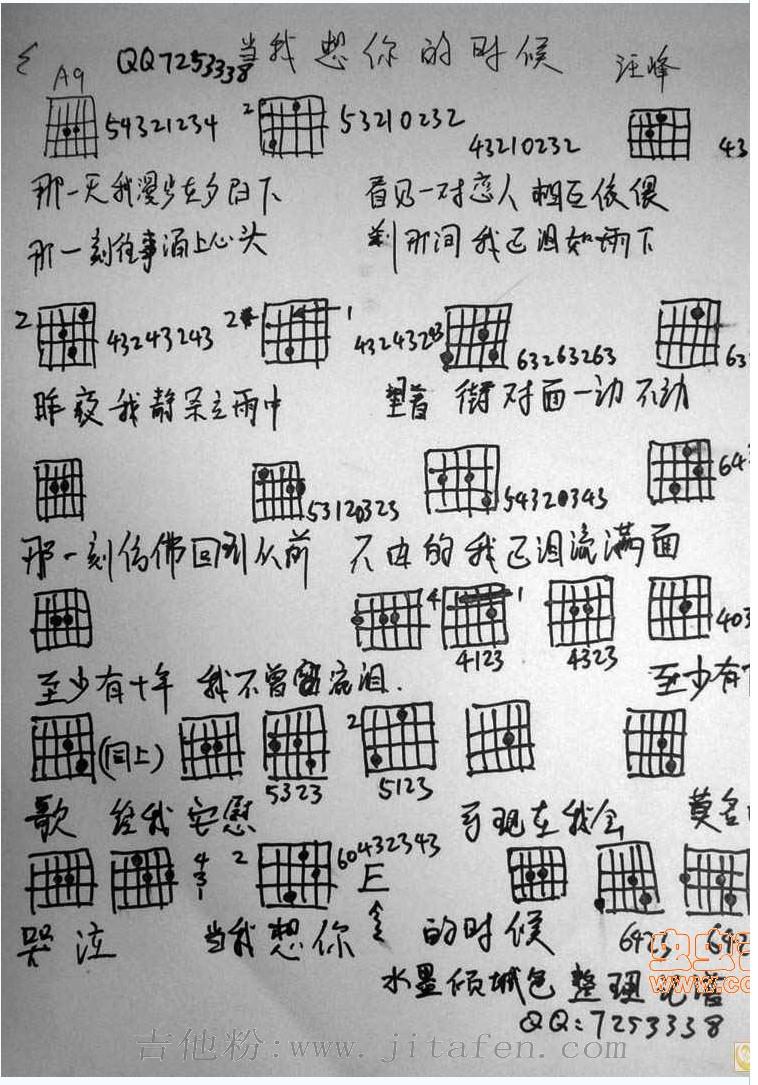 QQ7253338 当我想你的时候 汪峰
A9
54321234 2 53210232 43210232 43
那一天我漫步在夕阳下 看见一对恋人相互依偎
那一刻往事涌上心头 刹那间我已泪如雨下
2 43243243 2 1 43243243 63263263 63
昨夜我静呆立雨中 望着街对面一动不动
53120323 54320343 643
那一刻仿佛回到从前 不由的我已泪流满面
4 1 4123 4323 403
至少有十年我不曾流泪. 至少有
(同上) 5323 2 5123
歌 给我安慰 可现在我会 莫名
4 3 1 2 60432343 E
哭泣 当我想你的时候 6423 642
水墨倾城色 整理记谱
QQ:7253338
吉他粉:www.jitafen.com